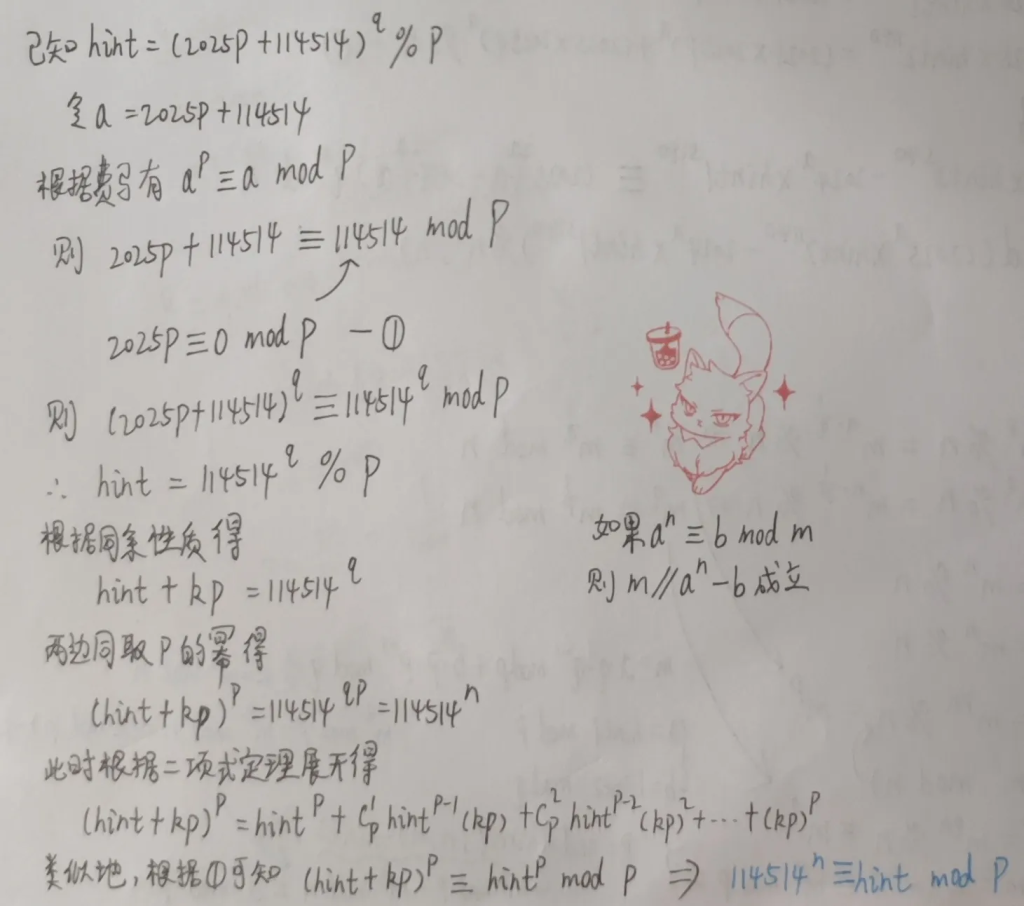 已知 hint = (2025p + 114514)^q % p
令 a = 2025p + 114514
根据费马有 a^p ≡ a mod p
则 2025p + 114514 ≡ 114514 mod p
2025p ≡ 0 mod p — ①
则 (2025p+114514)^q ≡ 114514^q mod p
∴ hint = 114514^q % p
根据同余性质得
hint + kp = 114514^q
两边同取 p 的幂得
(hint + kp)^p = 114514^qp = 114514^n
此时根据二项式定理展开得
(hint + kp)^p = hint^p + C_p^1 hint^p-1 (kp) + C_p^2 hint^p-2 (kp)^2 + ··· + (kp)^p
类似地，根据①可知 (hint + kp)^p ≡ hint^p mod p ⇒ 114514^n ≡ hint mod p
如果 a^n ≡ b mod m
则 m // a^n - b 成立